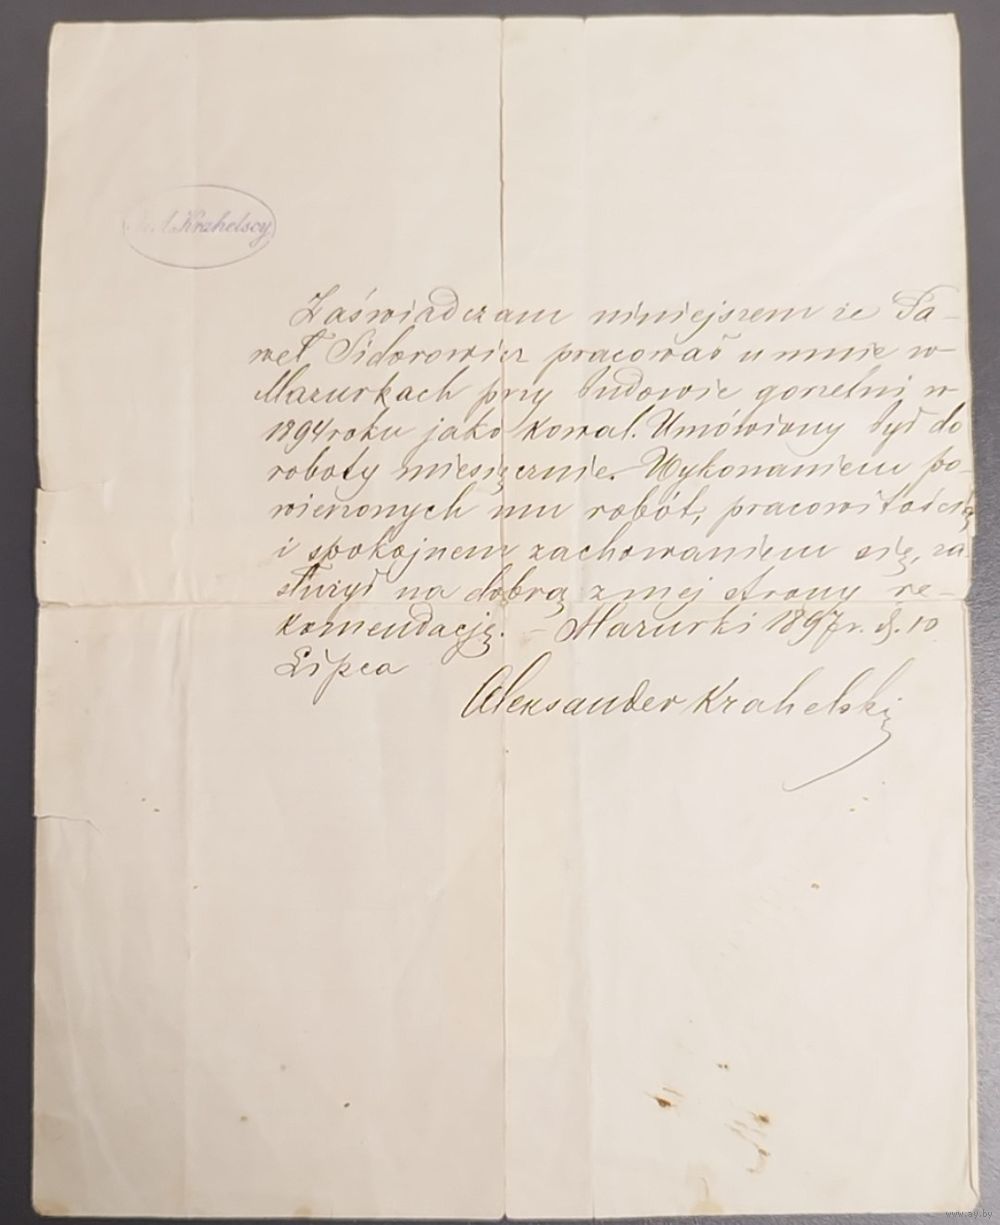 A. Krahelscy
Zaświadczam niniejszem że Pa-
weł Sidorowicz pracował u mnie w
Mazurkach przy budowie gorzelni w
1894 roku jako kowal. Umówiony był do
roboty miesięcznie. Wykonaniem po-
wierzonych mu robót, pracowitością
i spokojnem zachowaniem się, za
służył na dobrą z mej strony re-
komendację. – Mazurki 1897 r. d. 10
Lipca
Aleksander Krahelski
www.ay.by